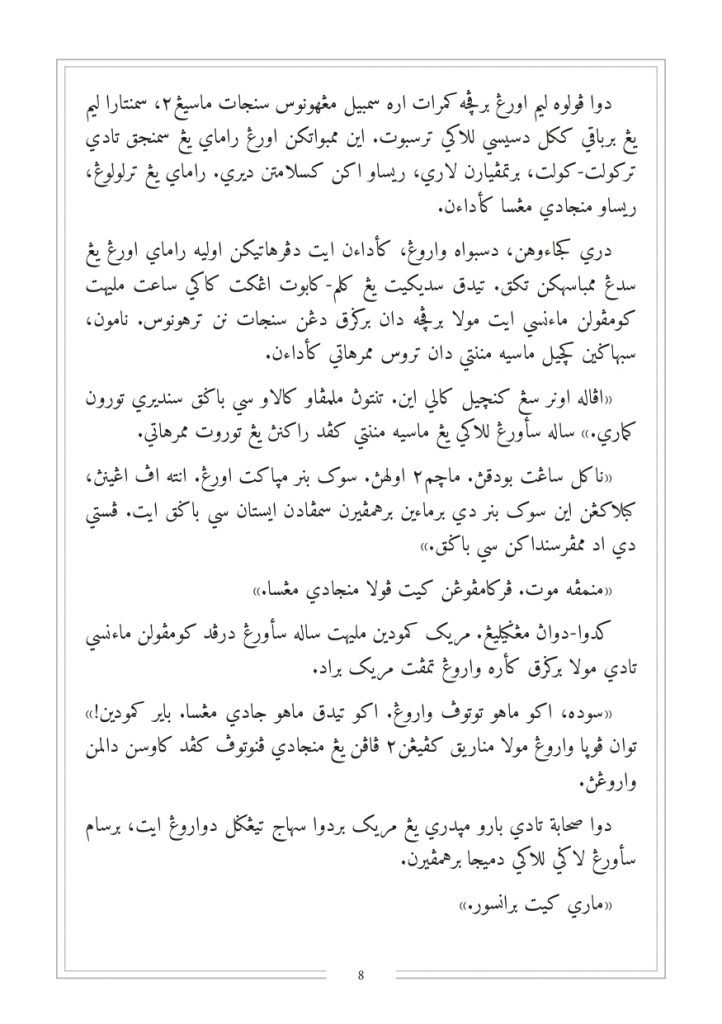 دوا ڤولوه ليم اورڠ برڤچه کمرات اره سمبيل مڠهونوس سنجات ماسيڠ٢، سمنتارا ليم
يڠ برباقي ککل دسيسي للاکي ترسبوت. اين ممبواتکن اورڠ راماي يڠ سمنجق تادي
ترکولت-کولت، برتمڤيارن لاري، ريساو اکن کسلامتن ديري. راماي يڠ ترلولوڠ،
ريساو منجادي مڠسا کأداءن.
دري کجاءوهن، دسبواه واروڠ، کأداءن ايت دڤرهاتيکن اوليه راماي اورڠ يڠ
سدڠ ممباسهکن تکق. تيدق سديکيت يڠ کلم-کابوت اڠکت کاکي ساعت مليهت
کومڤولن ماءنسي ايت مولا برڤچه دان برکرق دڠن سنجات نن ترهونوس. نامون،
سبهاکين کچيل ماسيه مننتي دان تروس ممرهاتي کأداءن.
«اڤاله اونر سڠ کنچيل کالي اين. تنتوڽ ملمڤاو کالاو سي باکق سنديري تورون
کماري.» ساله سأورڠ للاکي يڠ ماسيه مننتي کڤد راکنڽ يڠ توروت ممرهاتي.
«ناکل ساڠت بودقڽ. ماچم٢ اولهڽ. سوک بنر مپاکت اورڠ. انته اڤ اڠينڽ،
کبلاکڠن اين سوک بنر دي برماءين برهمڤيرن سمڤادن ايستان سي باکق ايت. ڤستي
دي اد ممڤرسنداکن سي باکق.»
«منمڤه موت. ڤرکامڤوڠن کيت ڤولا منجادي مڠسا.»
کدوا-دواڽ مڠکيليڠ. مريک کمودين مليهت ساله سأورڠ درڤد کومڤولن ماءنسي
تادي مولا برکرق کأره واروڠ تمڤت مريک براد.
«سوده، اکو ماهو توتوڤ واروڠ. اکو تيدق ماهو جادي مڠسا. باير کمودين!»
توان ڤوڽا واروڠ مولا مناريق کڤيڠن٢ ڤاڤن يڠ منجادي ڤنوتوڤ کڤد کاوسن دالمن
واروڠڽ.
دوا صحابة تادي بارو مپدري يڠ مريک بردوا سهاج تيڠکل دواروڠ ايت، برسام
سأورڠ لاکي للاکي دميجا برهمڤيرن.
«ماري کيت برانسور.»
8